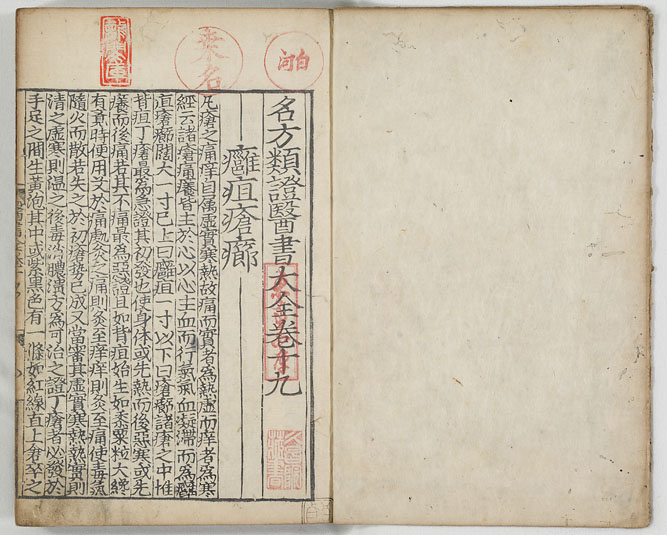 名方類證醫書大全卷十九
癰疽瘡癤
凡瘡之痛痒自属虛實寒熱故痛而實者為熱虛而痒者為寒
經云諸瘡痛癢皆主於心以心主血而行氣氣血凝滯而為癰
疽瘡癤闊大一寸已上曰癰疽一寸以下曰瘡癤諸瘡之中惟
背疽丁瘡最為急證其初發也使身体或先熱而後惡寒或先
癢而後痛若其不痛最為惡證且如背疽始生如黍粟粒大纔
有竟時便用艾於痛處灸之痛則灸至痒痒則灸至痛使毒氣
隨火而散若失之於初瘡勢已成又當審其虛實寒熱熱實則
清之虛寒則温之後毒消膿潰方為可治之證丁瘡者必發於
手足之間生黃泡其中或紫黑色有一條如紅線直上倉卒之
桑名